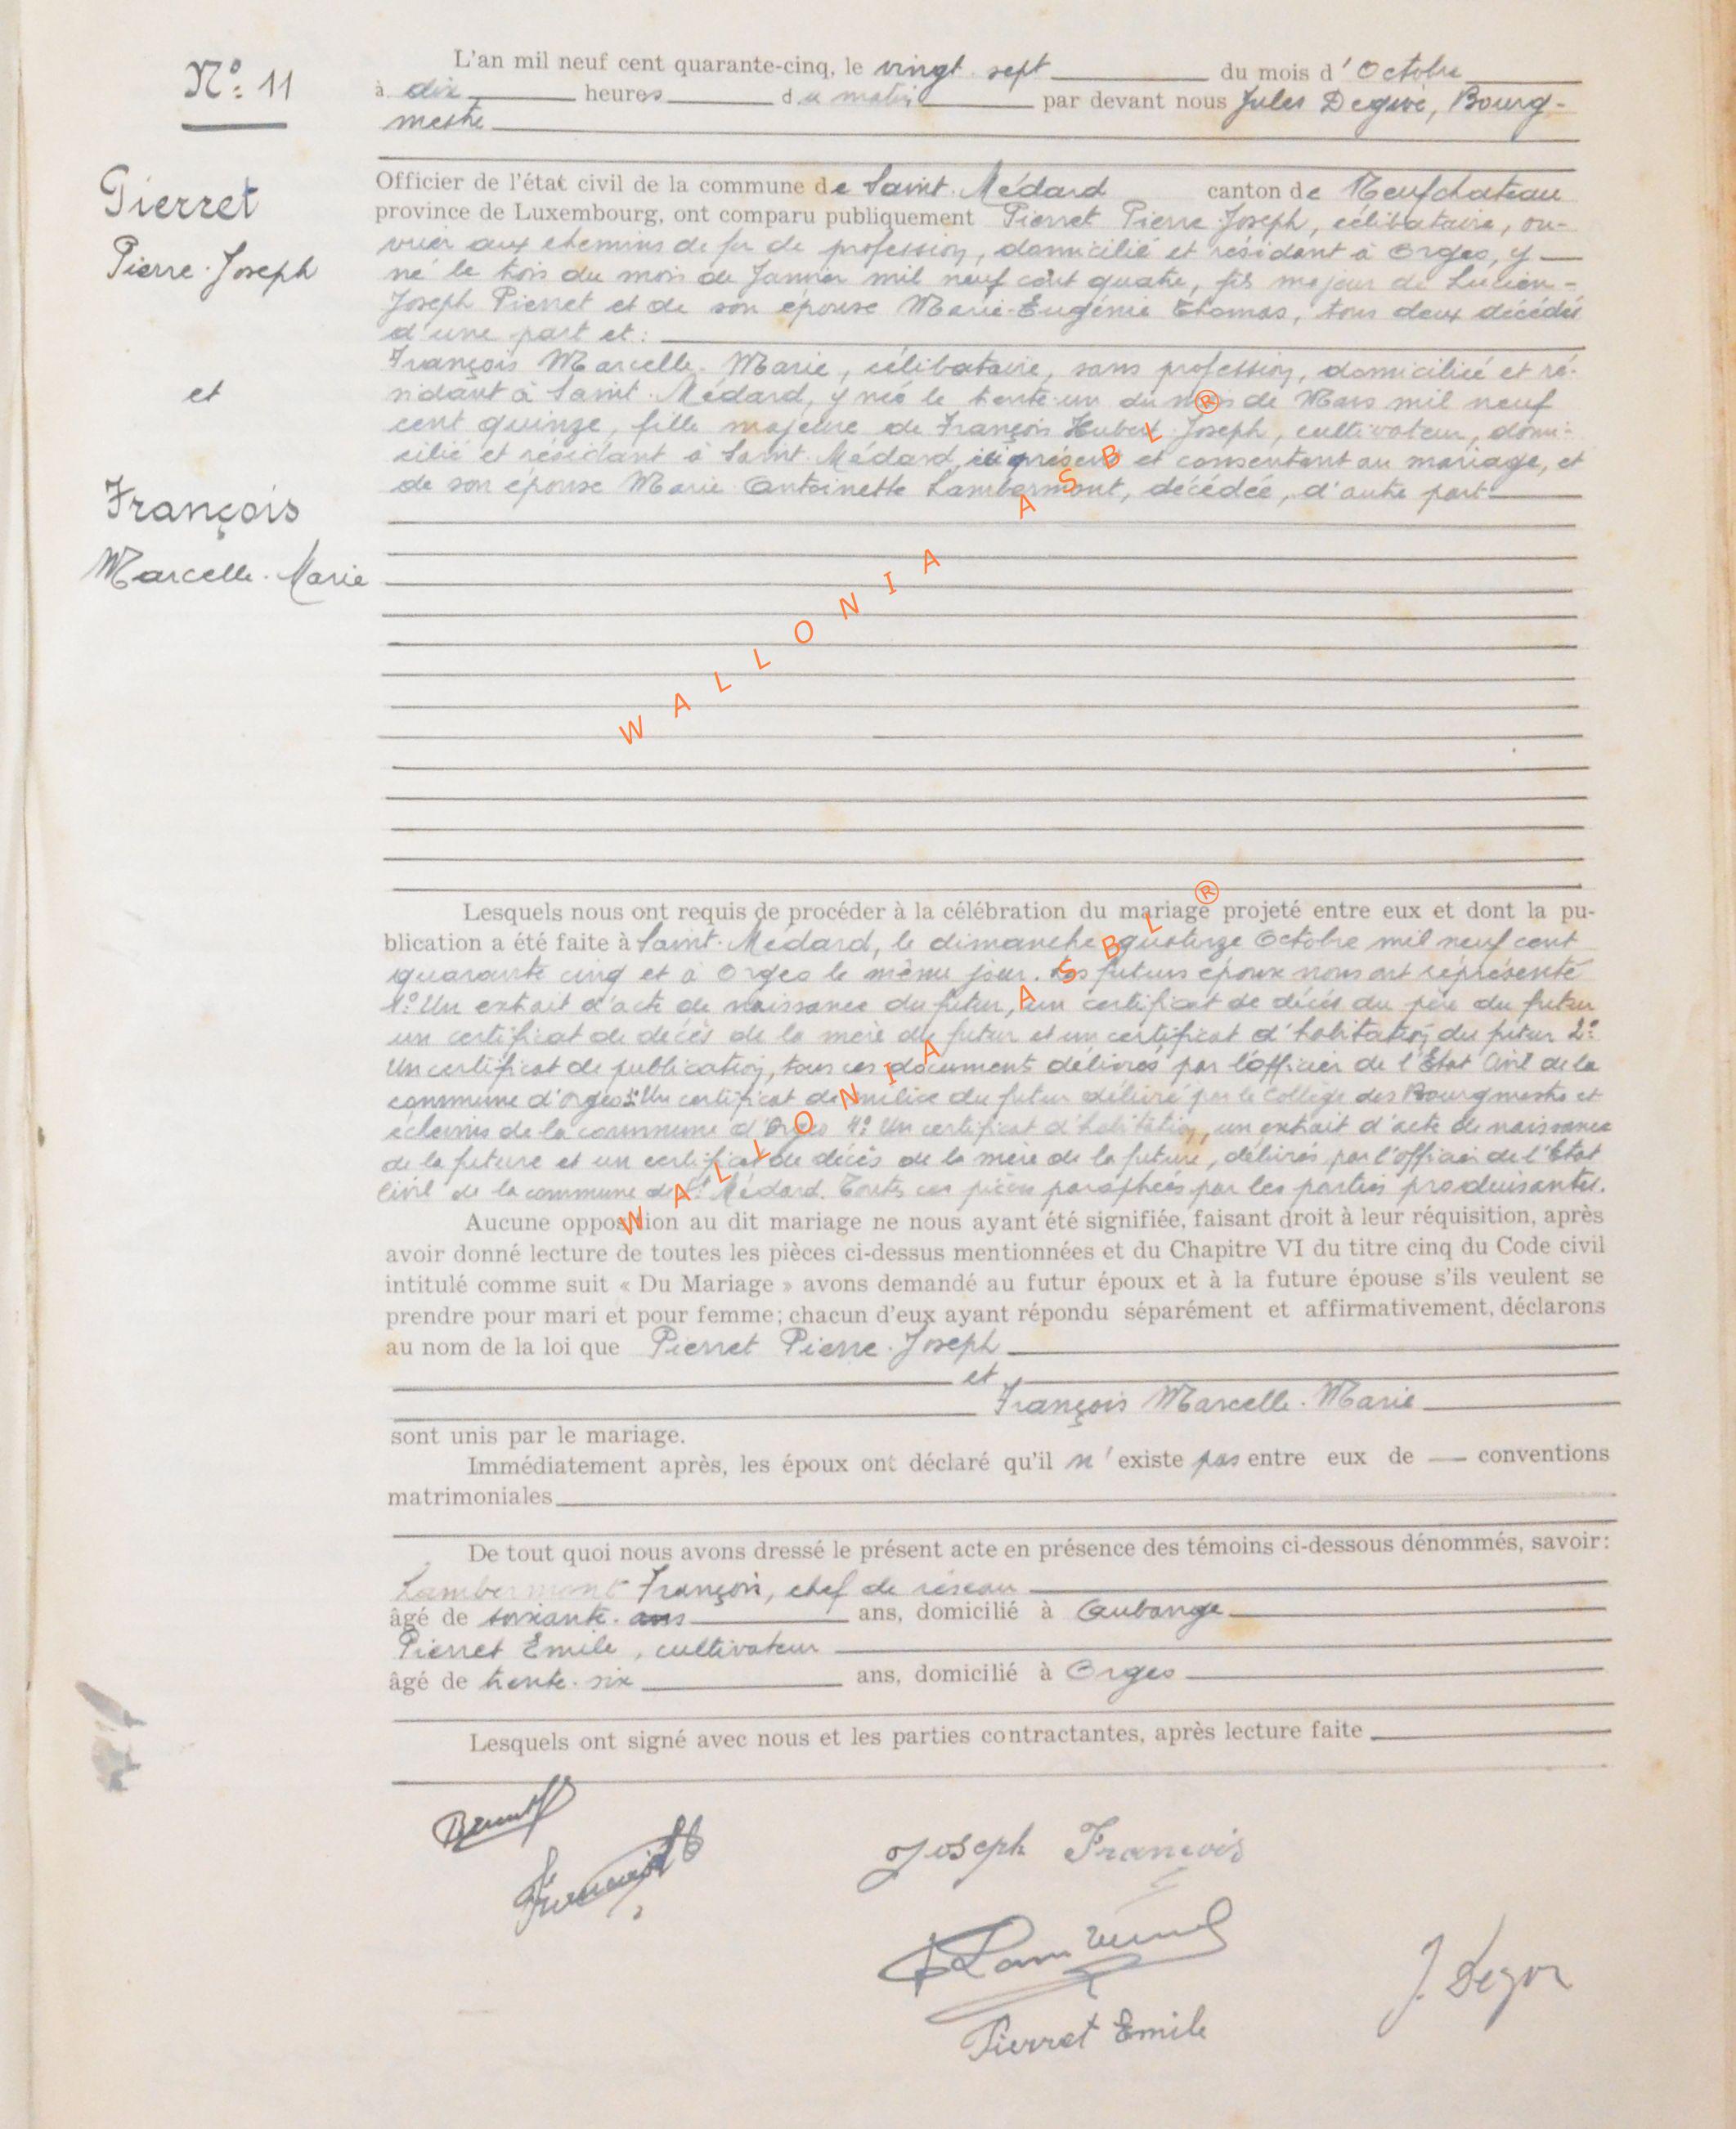 N°: 11
Pierret
Pierre-Joseph
et
François
Marcelle-Marie
L'an mil neuf cent quarante-cinq, le vingt sept du mois d'Octobre
à dix heures du matin par devant nous Jules Degive, Bourg-
mestre
Officier de l'état civil de la commune de Saint-Médard canton de Neufchateau
province de Luxembourg, ont comparu publiquement Pierret Pierre-Joseph, célibataire, ou-
vrier aux chemins de fer de profession, domicilié et résidant à Orgeo, y
né le trois du mois de Janvier mil neuf cent quatre, fils majeur de Lucien-
Joseph Pierret et de son épouse Marie-Eugénie Thomas, tous deux décédés
d'une part et:
François Marcelle-Marie, célibataire, sans profession, domiciliée et ré-
sidant à Saint-Médard, y née le trente-un du mois de Mars mil neuf
cent quinze, fille majeure de François Hubert Joseph, cultivateur, domi-
cilié et résidant à Saint-Médard, ici présent et consentant au mariage, et
de son épouse Marie Antoinette Lambermont, décédée, d'autre part
Lesquels nous ont requis de procéder à la célébration du mariage projeté entre eux et dont la pu-
blication a été faite à Saint-Médard, le dimanche quatorze Octobre mil neuf cent
quarante cinq et à Orgeo le même jour. Les futurs époux nous ont représenté
1° Un extrait d'acte de naissance du futur, un certificat de décès du père du futur
un certificat de décès de la mère du futur et un certificat d'habitation du futur 2°
Un certificat de publication, tous ces document délivrés par l'officier de l'Etat Civil de la
commune d'Orgeo 3° Un certificat de milice du futur délivré par le Collège des Bourgmestre et
échevins de la commune d'Orgeo 4° Un certificat d'habitation, un extrait d'acte de naissance
de la future et un certificat de décès de la mère de la future, délivrés par l'officier de l'Etat
Civil de la commune de St Médard. Toutes ces pièces paraphées par les parties produisantes.
Aucune opposition au dit mariage ne nous ayant été signifiée, faisant droit à leur réquisition, après
avoir donné lecture de toutes les pièces ci-dessus mentionnées et du Chapitre VI du titre cinq du Code civil
intitulé comme suit « Du Mariage » avons demandé au futur époux et à la future épouse s'ils veulent se
prendre pour mari et pour femme; chacun d'eux ayant répondu séparément et affirmativement, déclarons
au nom de la loi que Pierret Pierre-Joseph
et
François Marcelle-Marie
sont unis par le mariage.
Immédiatement après, les époux ont déclaré qu'il n'existe pas entre eux de — conventions
matrimoniales
De tout quoi nous avons dressé le présent acte en présence des témoins ci-dessous dénommés, savoir:
Lambermont François, chef de réseau
âgé de soixante ans ans, domicilié à Aubange
Pierret Emile, cultivateur
âgé de trente-six ans, domicilié à Orgeo
Lesquels ont signé avec nous et les parties contractantes, après lecture faite
Joseph François
Pierret Emile
WALLONIA ASBL ®
WALLONIA ASBL ®